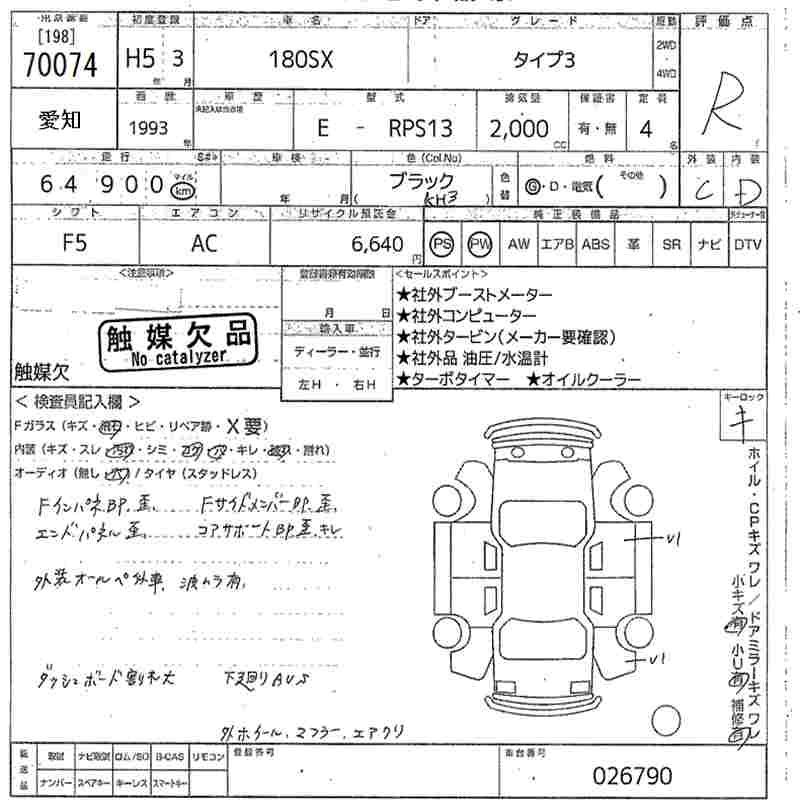 [198]
70074
初度登録
車名
ドア
グレード
駆動
評価点
H5 3
年 月
180SX
タイプ3
2WD
4WD
R
愛知
西暦
車歴
型式
排気量
保証書
定員
1993
年
E - RPS13
2,000
CC
有・無
4
名
走行
車検
色(Col.No)
燃料
外装
内装
64900
マイル
km
年 月
ブラック
(KH3)
色替
G・D・電気(その他)
C
D
シフト
エアコン
リサイクル預託金
純正装備品
F5
AC
6,640
円
PS
PW
AW
エアB
ABS
革
SR
ナビ
DTV
<注意事項>
触媒欠品
No catalyzer
触媒欠
登録書類有効期限
月 日
輸入車
ディーラー・並行
左H ・ 右H
<セールスポイント>
★社外ブーストメーター
★社外コンピューター
★社外タービン(メーカー要確認)
★社外品 油圧/水温計
★ターボタイマー ★オイルクーラー
キーロック
キ
<検査員記入欄>
Fガラス(キズ・飛石・ヒビ・リペア跡・X要)
内装(キズ・スレ・シミ・キレ・割れ)
オーディオ(無し)/タイヤ(スタッドレス)
FインパネBP.歪. FサイドメンバーBP.歪.
エンドパネル歪. コアサポートBP歪.キレ
外装オールペイント車. 波ムラ有.
ダッシュボード割れ大 下廻りAUS
外ホイール. マフラー. エアクリ
V1
V1
ホイル・CPキズワレ/ドアミラーキズワレ
小キズ有 小U有 補修有
返送品
取説
ナビ取説
ロム/SD
B-CAS
リモコン
ナンバー
スペアキー
キーレス
スマートキー
登録番号
車台番号
026790